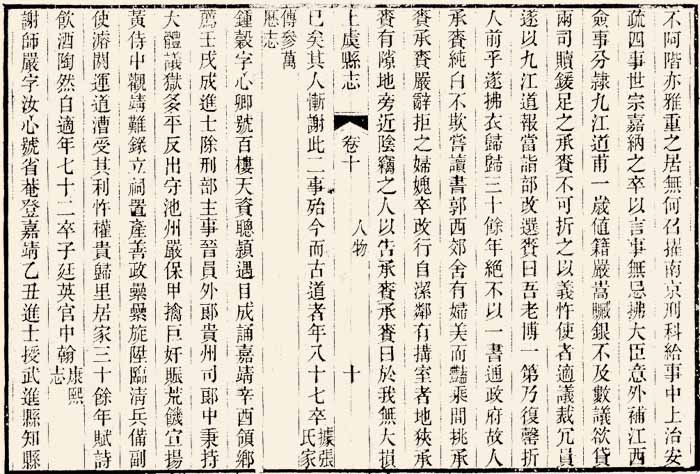 不阿階亦雅重之居無何召擢南京刑科給事中上治安
疏四事世宗嘉納之卒以言事無忌拂大臣意外補江西
僉事分隸九江道甫一歲值籍嚴嵩贓銀不及數議欲貸
兩司贖鍰足之承賚不可折之以義忤使者適議裁冗員
遂以九江道報當詣部改選賚曰吾老博一第乃復罄折
人前乎遂拂衣歸歸三十餘年絕不以一書通政府故人
承賚純白不欺嘗讀書郭西郊舍有婦美而豔乘間挑承
賚承賚嚴辭拒之婦媿卒改行自潔鄰有搆室者地狹承
賚有隙地旁近陰竊之人以告承賚承賚曰於我無大損
上虞縣志 卷十 人物 十
已矣其人慚謝此二事殆今而古道者年八十七卒據張氏家
傳參萬
歷志
鍾穀字心卿號百樓天資聰穎遇目成誦嘉靖辛酉領鄉
薦壬戌成進士除刑部主事晉員外郎貴州司郎中秉持
大體議獄多平反出守池州嚴保甲擒巨奸賑荒饑宣揚
黃侍中觀靖難錄立祠置產善政纍纍旋陞臨清兵備副
使濬閘運道漕受其利忤權貴歸里居家三十餘年賦詩
飲酒陶然自適年七十二卒子廷英官中翰康熙志
謝師嚴字汝心號省菴登嘉靖乙丑進士授武進縣知縣